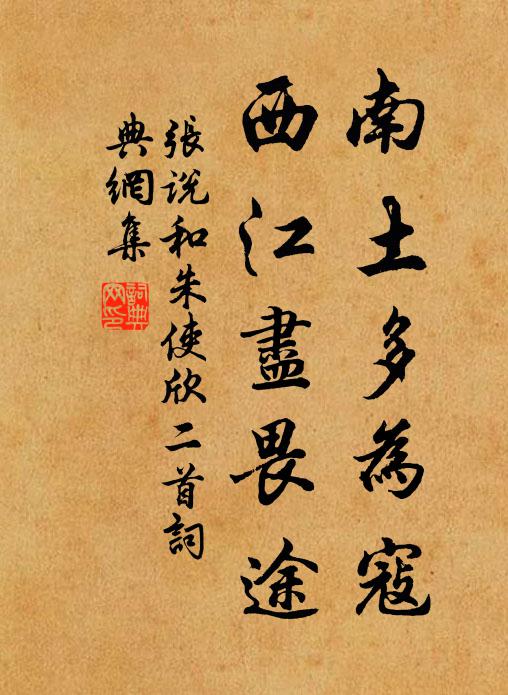 南土多為寇
西江盡畏途
張說和朱使欣二首詞
典網集
詞典網印